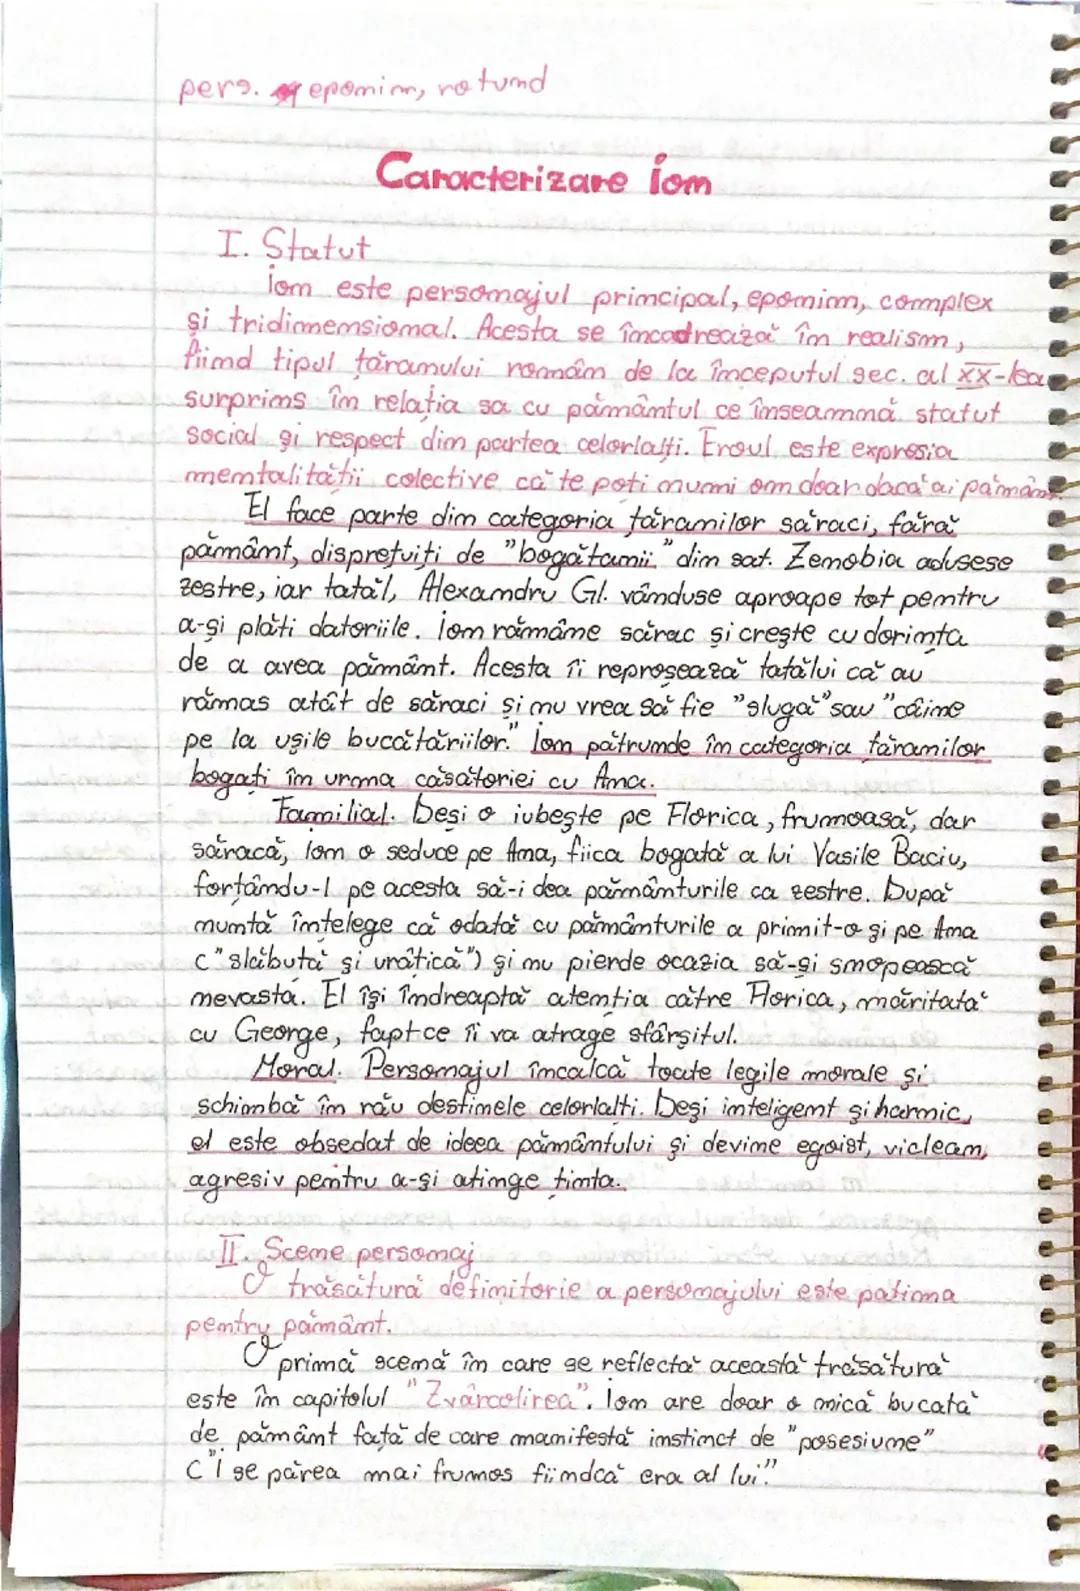 pers. eponim, rotund
Caracterizare Ion
I. Statut
Ion este personajul principal, eponim, complex
și tridimensional. Acesta se încadrează în realism,
fiind tipul țăranului român de la începutul sec. al XX-lea
surprins în relația sa cu pământul ce înseamnă statut
social și respect din partea celorlalți. Eroul este expresia
mentalității colective că te poți numi om doar dacă ai pământ.
El face parte din categoria țăranilor săraci, fără
pământ, disprețuiți de "bogătanii" din sat. Zenobia adusese
zestre, iar tatăl, Alexandru Gl. vânduse aproape tot pentru
a-și plăti datoriile. Ion rămâne sărac și crește cu dorința
de a avea pământ. Acesta îi reproșează tatălui că au
rămas atât de săraci și nu vrea să fie "slugă" sau "câine
pe la ușile bucătăriilor." Ion pătrunde în categoria țăranilor
bogați în urma căsătoriei cu Ana.
Familial. Deși o iubește pe Florica, frumoasă, dar
săracă, Ion o seduce pe Ana, fiica bogată a lui Vasile Baciu,
forțându-l pe acesta să-i dea pământurile ca zestre. După
nuntă înțelege că odată cu pământurile a primit-o și pe Ana
("slăbuță și urâtică") și nu pierde ocazia să-și snopească
nevasta. El își îndreaptă atenția către Florica, măritată
cu George, fapt ce îi va atrage sfârșitul.
Moral. Personajul încalcă toate legile morale și
schimbă în rău destinele celorlalți. Deși inteligent și harnic,
el este obsedat de ideea pământului și devine egoist, viclean,
agresiv pentru a-și atinge ținta.
II. Scene personaj
O trăsătură definitorie a personajului este patima
pentru pământ.
O primă scenă în care se reflectă această trăsătură
este în capitolul "Zvârcolirea". Ion are doar o mică bucată
de pământ față de care manifestă instinct de "posesiune"
("I se părea mai frumos fiindcă era al lui".